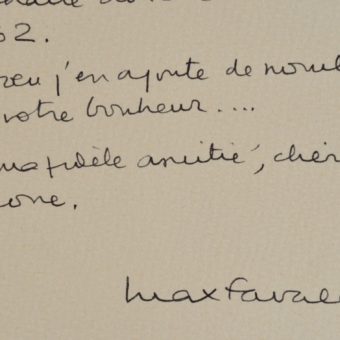 62.
j'en ajoute de nomb
votre bonheur....
ma fidèle amitié, chèr
one.
Max Faval